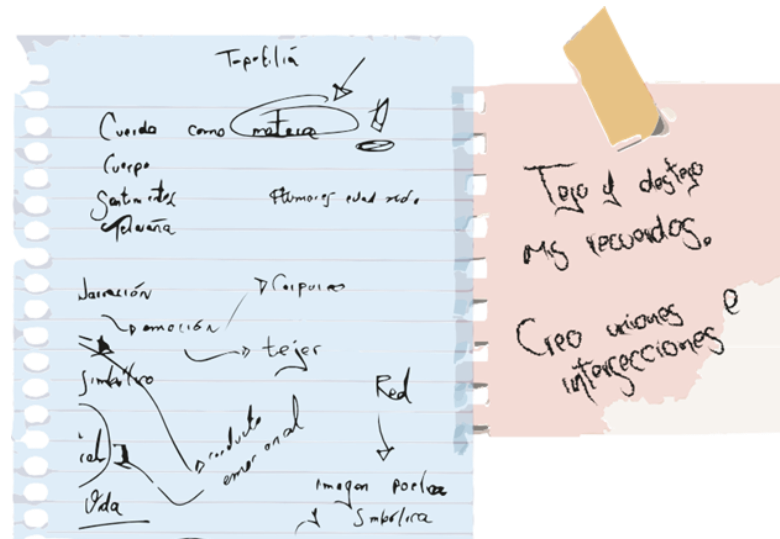 Topofilia
Cuerda como materia
Cuerpo
Sentimientos
Telaraña
Narración
emoción
tejer
Simbólico
Red
conducto
emocional
Vida
Imagen poética
y Simbólica
Tejo y destejo
mis recuerdos.
Creo uniones e
intersecciones